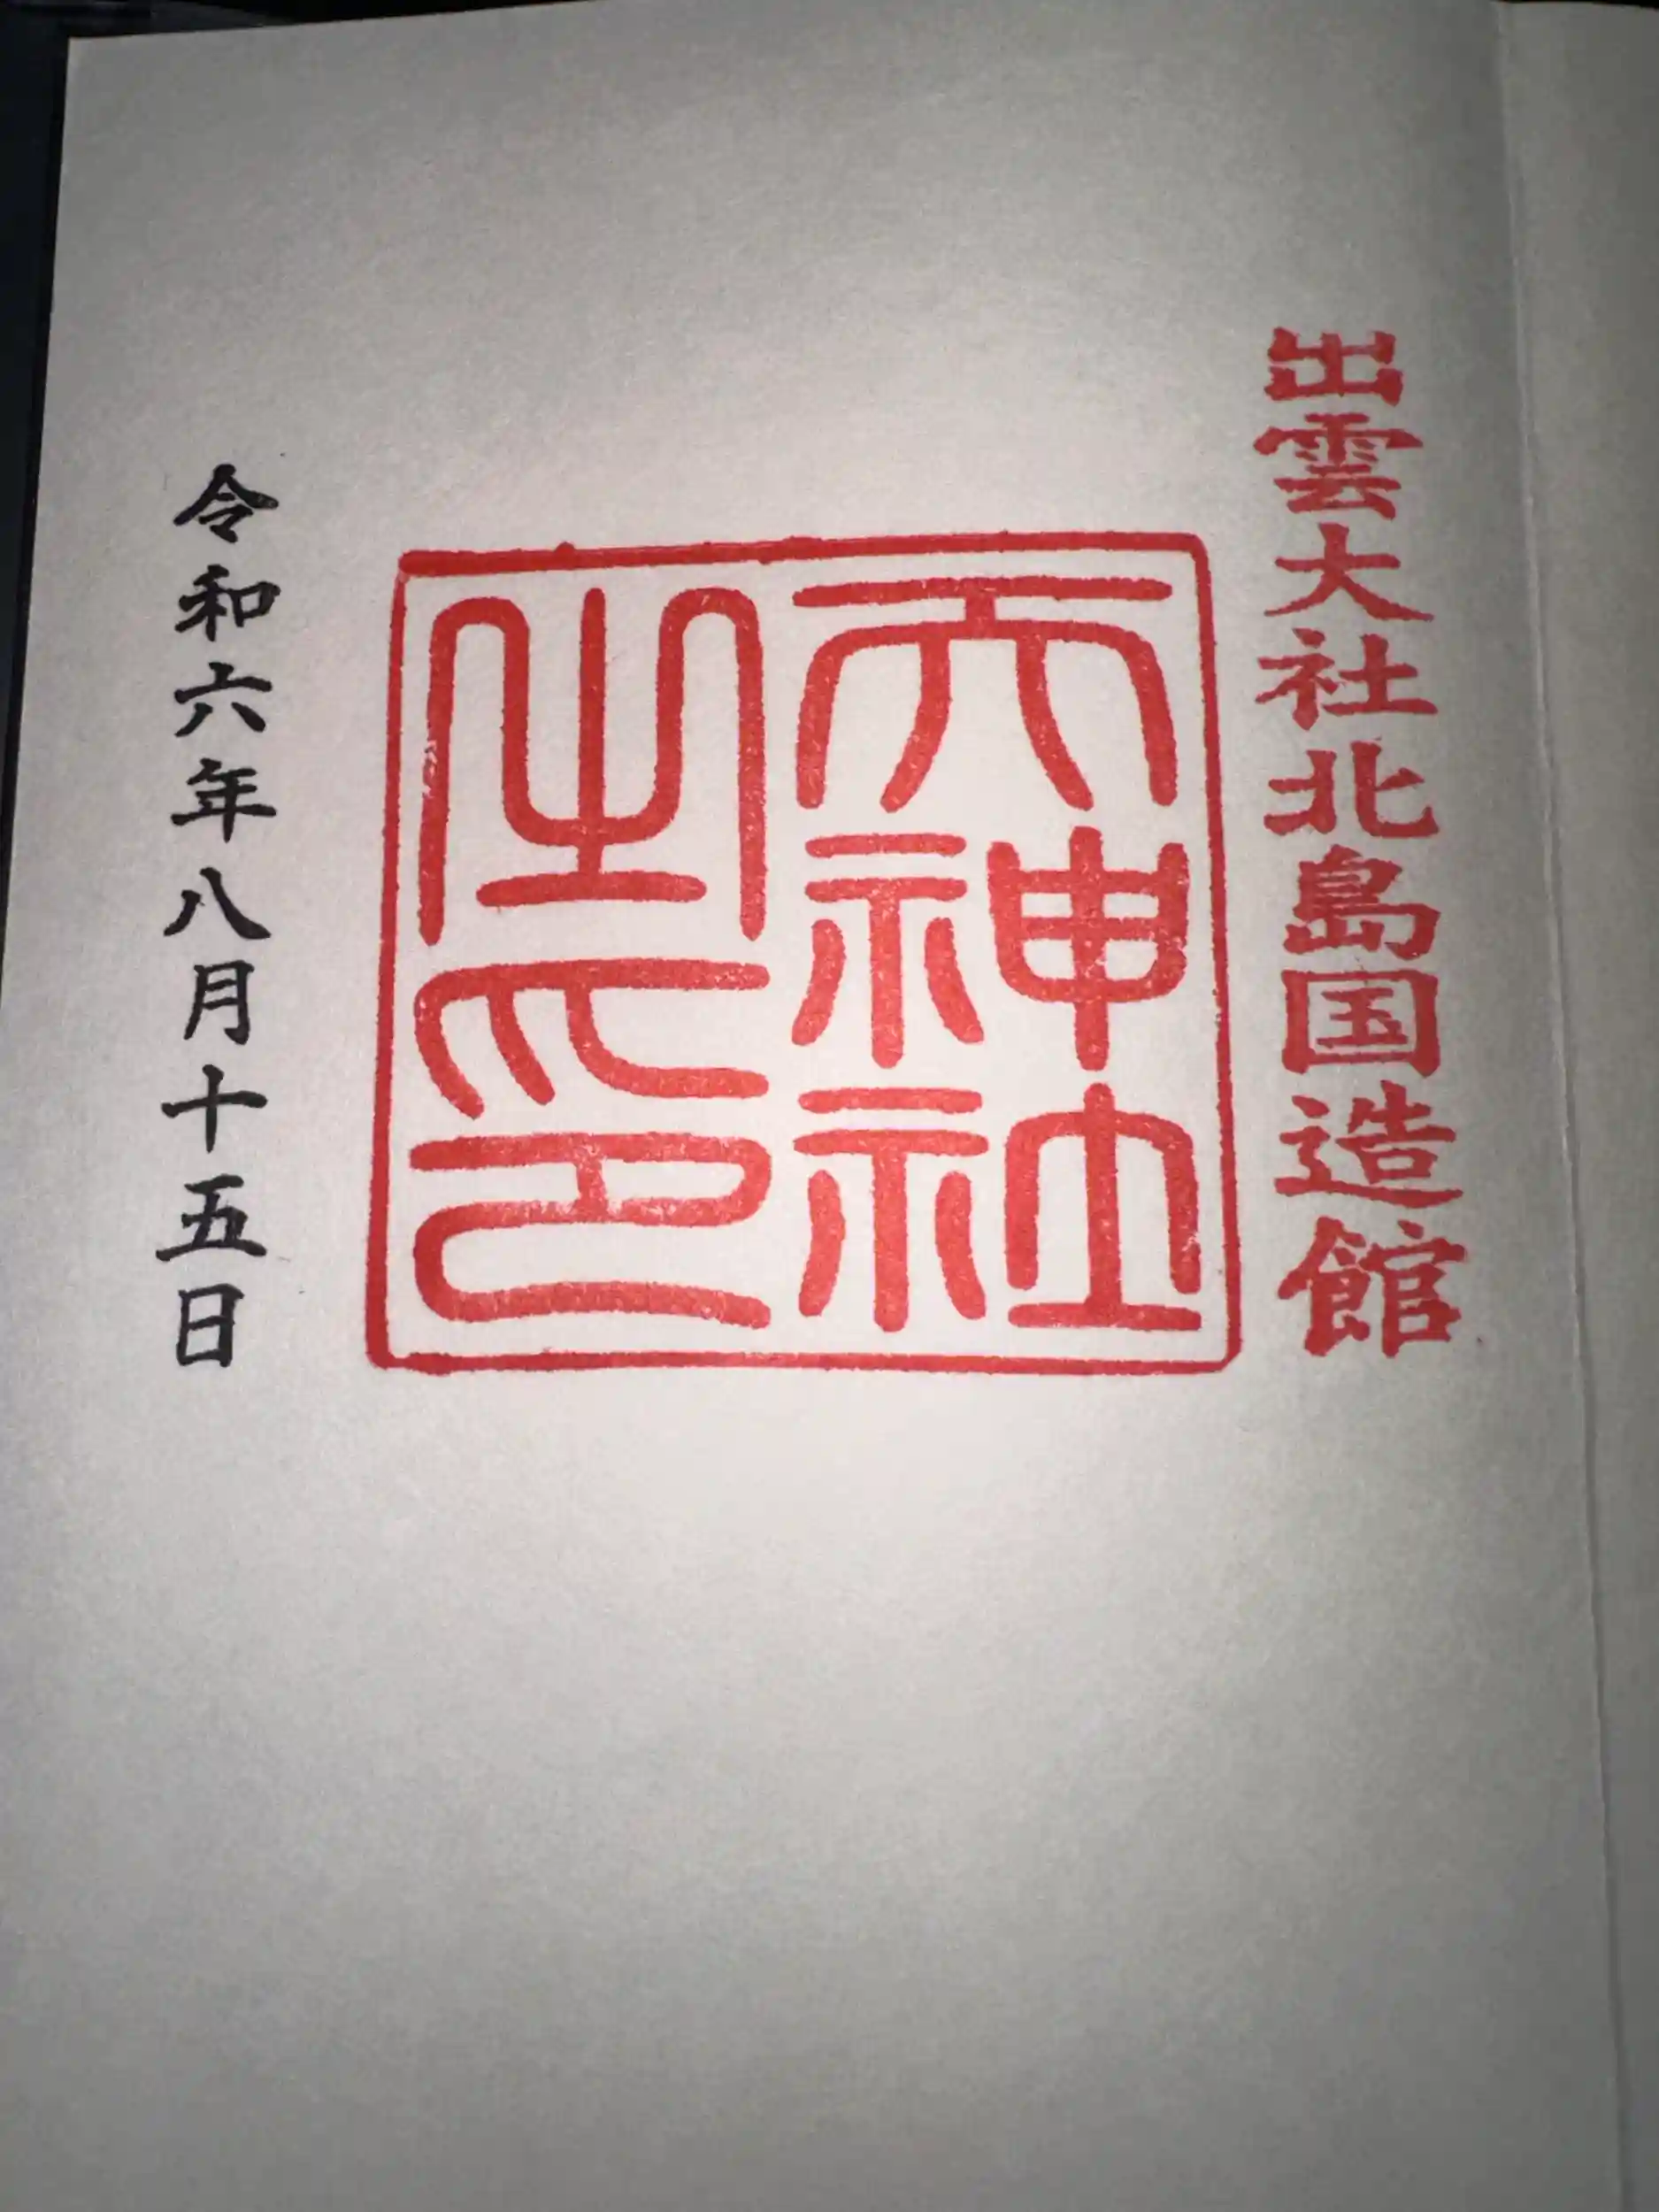 出雲大社北島国造館
天神社
之印
令和六年八月十五日